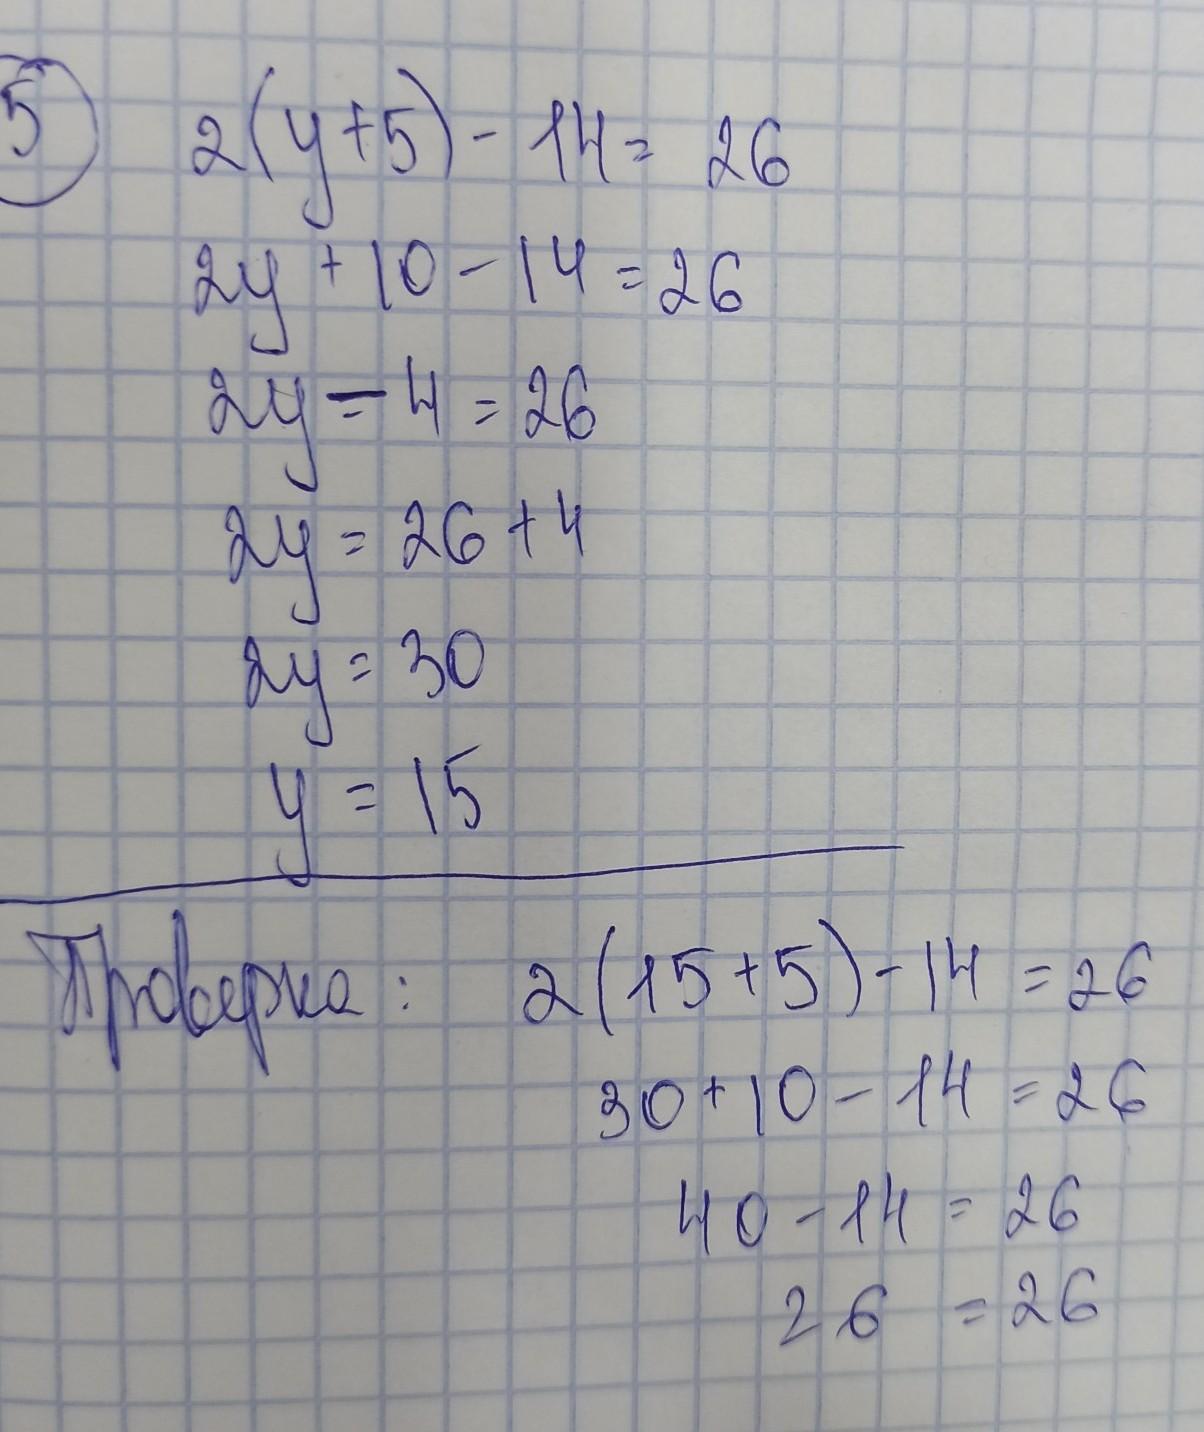 5 2(y+5) - 14 = 26
2y + 10 - 14 = 26
2y - 4 = 26
2y = 26 + 4
2y = 30
y = 15
Проверка: 2(15+5) - 14 = 26
30 + 10 - 14 = 26
40 - 14 = 26
26 = 26